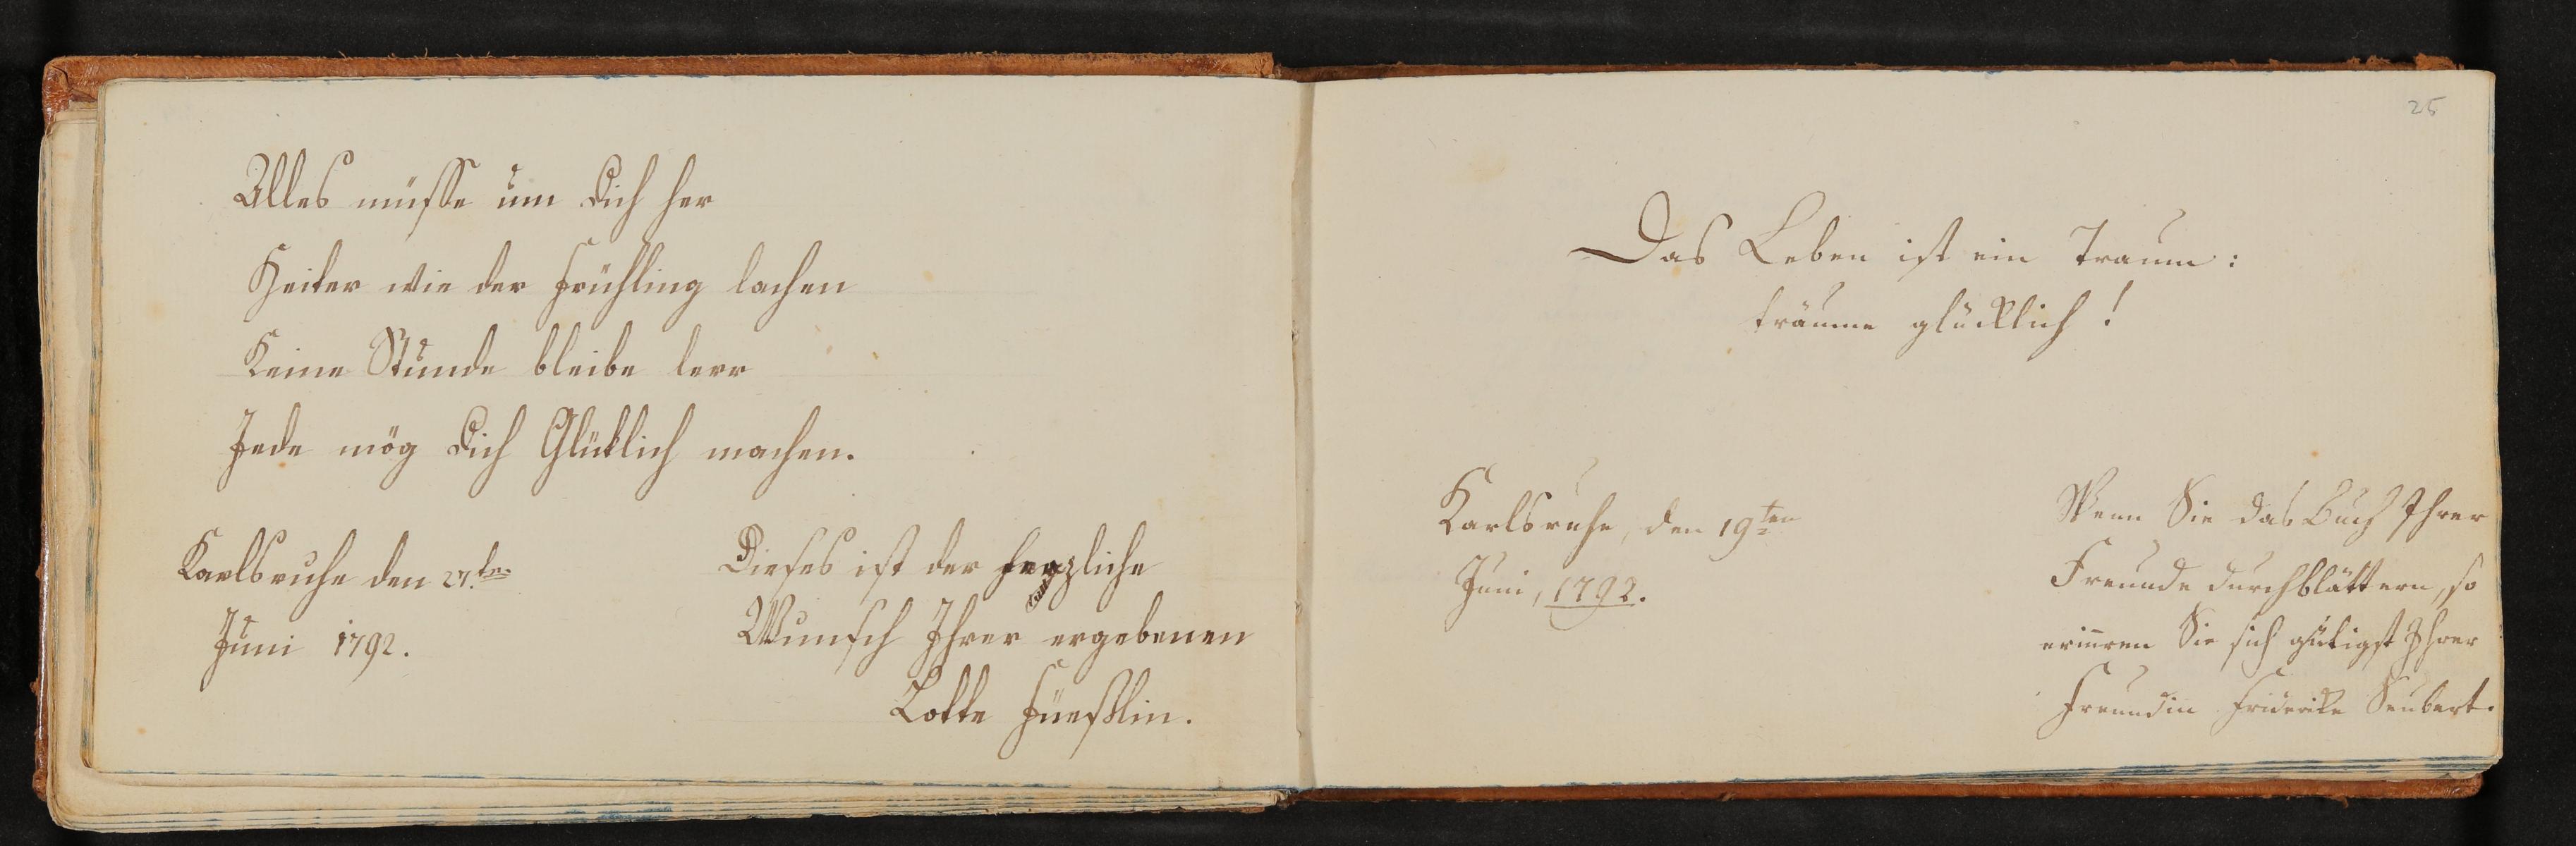 Alles müsse um Dich her
Heiter wie der Frühling lachen
Keine Stunde bleibe leer
Jede mög Dich Glüklich machen.
Karlsruhe den 27.ten
Juni 1792.
Dieses ist der herzliche
Wunsch Ihrer ergebenen
Lotte Füeßlin.
25
Das Leben ist ein Traum:
träume glücklich!
Karlsruhe, den 19ten
Juni, 1792.
Wenn Sie das Buch Ihrer
Freunde durchblättern, so
erin̄ren Sie sich gütigst Ihrer
Freundin Friderike Seubert.